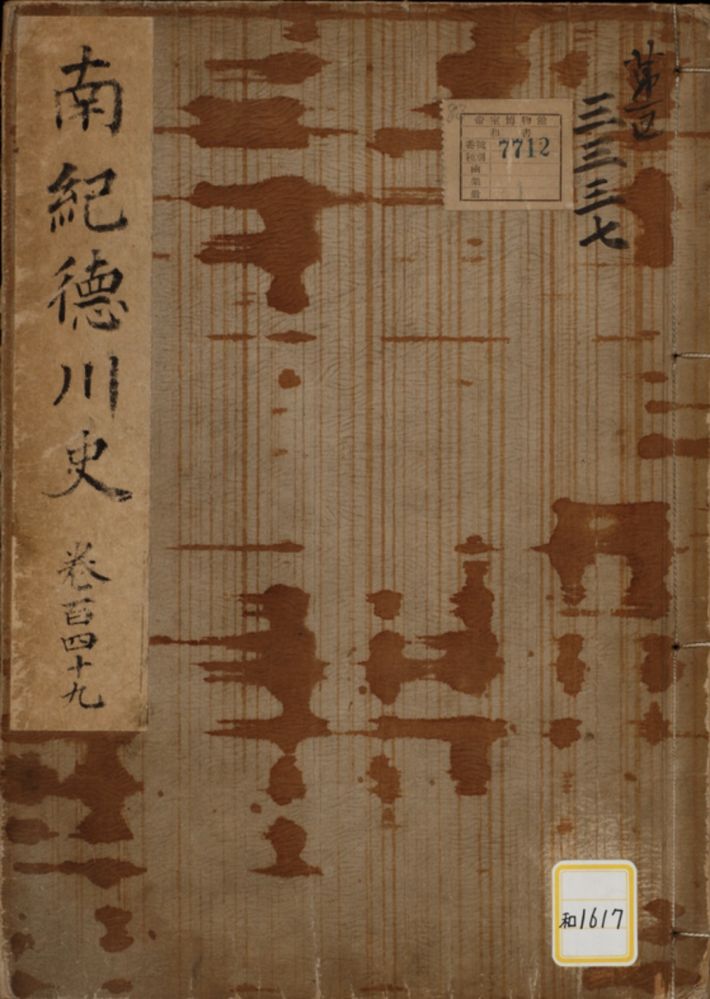 三三三七
帝室博物館
和書
7712
南紀徳川史 巻百四十九
和1617